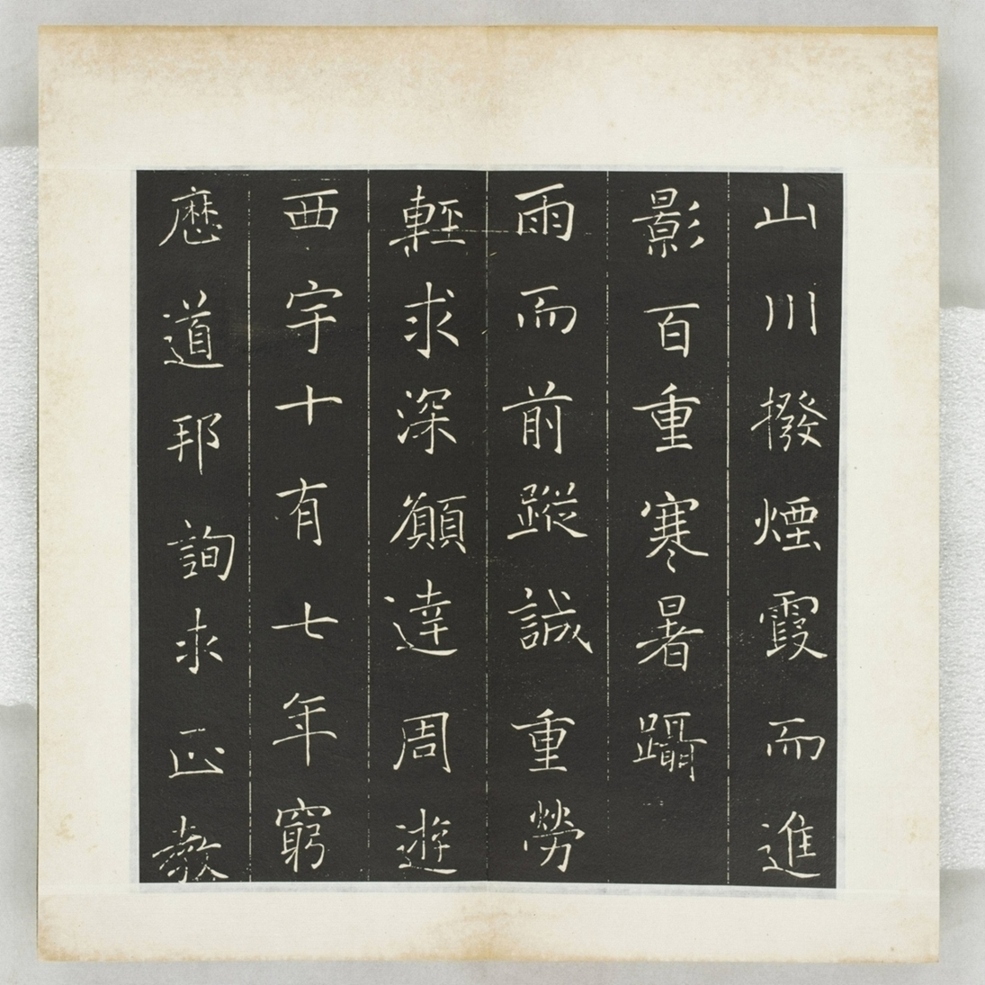 山川撥煙霞而進
影百重寒暑躡
雨而前蹤誠重勞
輕求深願達周遊
西宇十有七年窮
歷道邦詢求正教